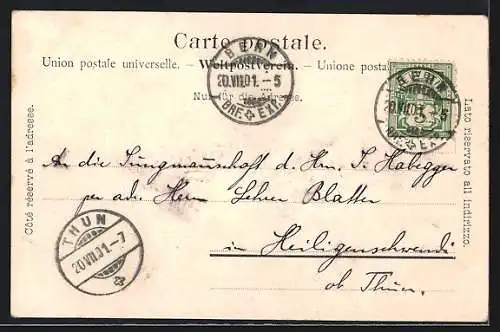 Carte postale.
Union postale universelle. – Weltpostverein. – Unione postale
Nur für die Adresse.
Côté réservé à l'adresse.
Lato riservato all indirizzo.
BERN
20.VII.01.–5
BRF. EXP.
BERN
20.VII.01.–5
BRF. EXP.
5
An die Jungmannschaft d. Hrn. J. Habegger
per adr. Herrn Lehrer Blatter
in Heiligenschwendi
ob Thun.
THUN
20.VII.01.–7